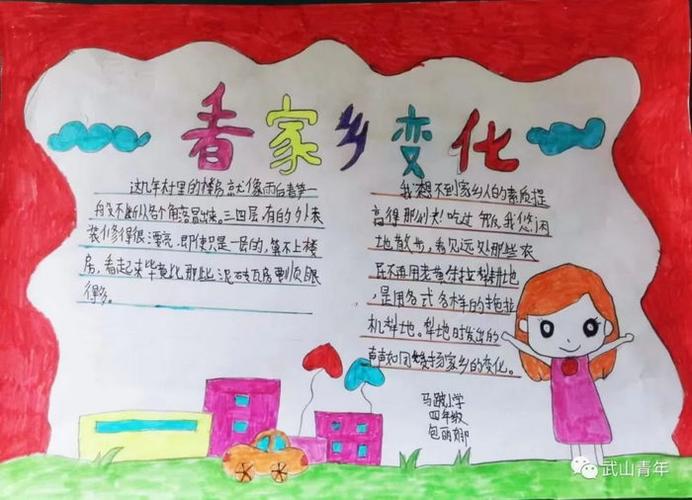 看家乡变化
这几年村里的楼房就像雨后春笋一
般不断从各个角落冒出来。三四层,有的外表
装修得很漂亮.即使只是一层的,算不上楼
房,看起来毕竟比那些泥砖瓦房要顺眼
得多。
我想不到家乡人的素质提
高得那么快!吃过饭我悠闲
地散步,看见远处那些农
民不再用老黄牛拉犁耕地
,是用各式各样的拖拉
机犁地。犁地时发出的
声如同赞扬家乡的变化。
小学
四年级
包丽娜
武山青年